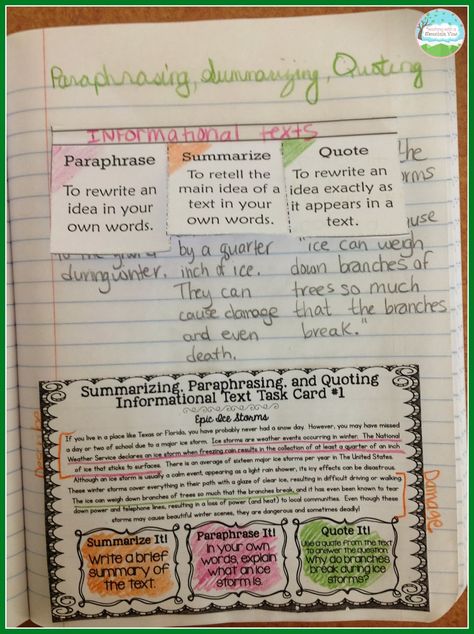 Teaching with a
Mountain View
Paraphrasing, Summarizing, Quoting
Informational texts
Paraphrase
To rewrite an
idea in your
own words.
Summarize
To retell the
main idea of a
text in your
own words.
Quote
To rewrite an
idea exactly as
it appears in a
text.
the
during winter.
by a quarter
inch of ice.
They can
cause damage
and even
death.
"ice can weigh
down branches of
trees so much
that the branches
break."
Summarizing, Paraphrasing, and Quoting
Informational Text Task Card #1
Epic Ice Storms
If you live in a place like Texas or Florida, you have probably never had a snow day. However, you may have missed
a day or two of school due to a major ice storm. Ice storms are weather events occurring in winter. The National
Weather Service declares an ice storm when freezing rain results in the collection of at least a quarter of an inch
of ice that sticks to surfaces. There is an average of sixteen major ice storms per year in The United States.
Although an ice storm is usually a calm event, appearing as a light rain shower, its icy effects can be disastrous.
These winter storms cover everything in their path with a glaze of clear ice, resulting in difficult driving or walking.
The ice can weigh down branches of trees so much that the branches break, and it has even been known to tear
down power and telephone lines, resulting in a loss of power (and heat) to local communities. Even though these
storms may cause beautiful winter scenes, they are dangerous and sometimes deadly!
Damage
Summarize It!
Write a brief
summary of
the text.
Paraphrase It!
In your own
words, explain
what an ice
storm is.
Quote It!
Use a quote from the text
to answer the question:
Why do branches
break during ice
storms?